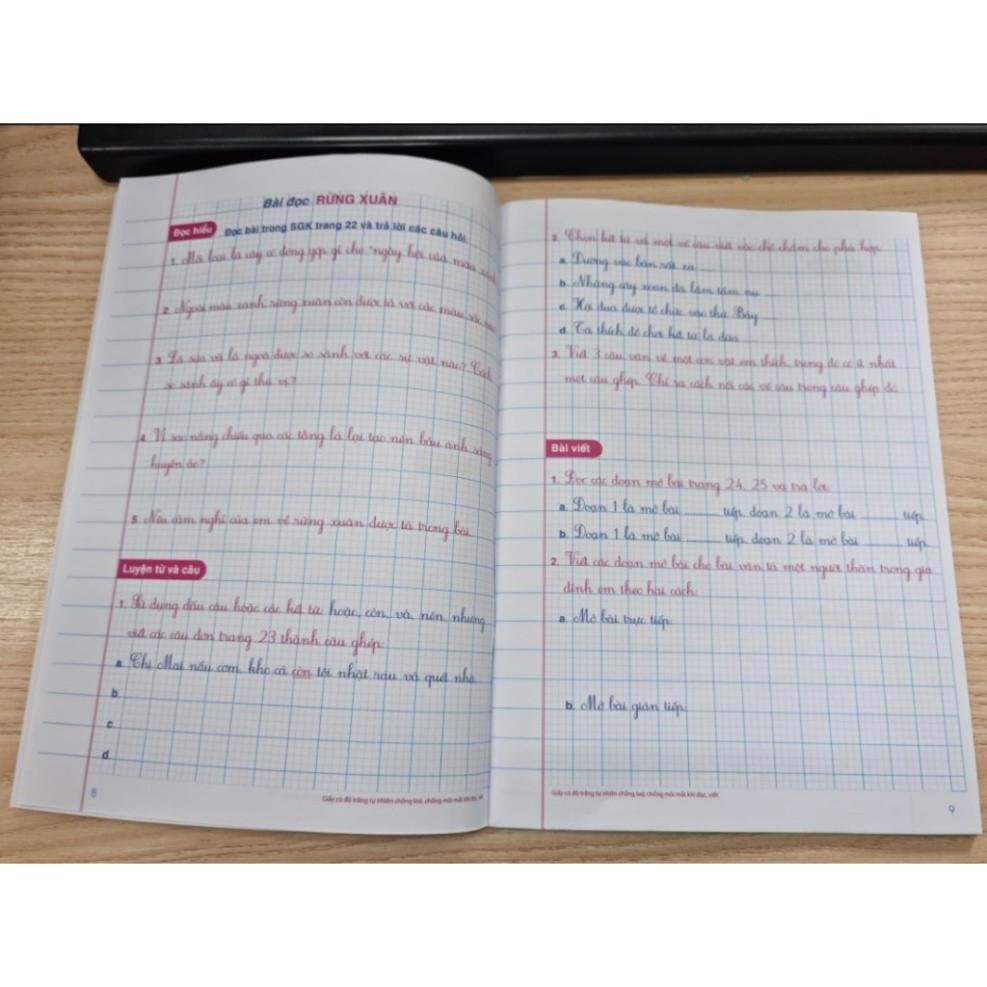 Bài đọc RỪNG XUÂN
Đọc hiểu Đọc bài trong SGK trang 22 và trả lời các câu hỏi
1. Mỗi loại lá cây có đóng góp gì cho "ngày hội của màu
2. Ngoài màu xanh, rừng xuân còn được tả với các màu sắc
3. Lá sưa và lá ngoã được so sánh với các sự vật nào? Cách
so sánh ấy có gì thú vị?
4. Vì sao nắng chiếu qua các tầng lá lại tạo nên bầu ánh sáng
huyền ảo?
5. Nêu cảm nghĩ của em về rừng xuân được tả trong bài.
Luyện từ và câu
1. Sử dụng dấu câu hoặc các kết từ: hoặc, còn, và, nên, nhưng
viết các câu đơn trang 23 thành câu ghép:
a. Chị Mai nấu cơm, kho cá còn tôi nhặt rau và quét nhà.
b.
c.
d.
8
Giấy có độ trắng tự nhiên chống loá, chống mỏi mắt khi đọc, viết
2. Chọn kết từ và một vế câu viết vào chỗ chấm cho phù hợp:
a. Đường vào bản rất xa
b. Những cây xoan đã lấm tấm nụ
c. Hội đua được tổ chức vào thứ Bảy
d. Ta thích đồ chơi
3. Viết 3 câu văn về một con vật em thích, trong đó có ít nhất
một câu ghép. Chỉ ra cách nối các vế câu trong câu ghép đó.
Bài viết
1. Đọc các đoạn mở bài trang 24, 25 và trả lời:
a. Đoạn 1 là mở bài ........ tiếp, đoạn 2 là mở bài ........ tiếp.
b. Đoạn 1 là mở bài ........ tiếp, đoạn 2 là mở bài ........ tiếp.
2. Viết các đoạn mở bài cho bài văn tả một người thân trong gia
đình em theo hai cách:
a. Mở bài trực tiếp:
b. Mở bài gián tiếp:
Giấy có độ trắng tự nhiên chống loá, chống mỏi mắt khi đọc, viết
9